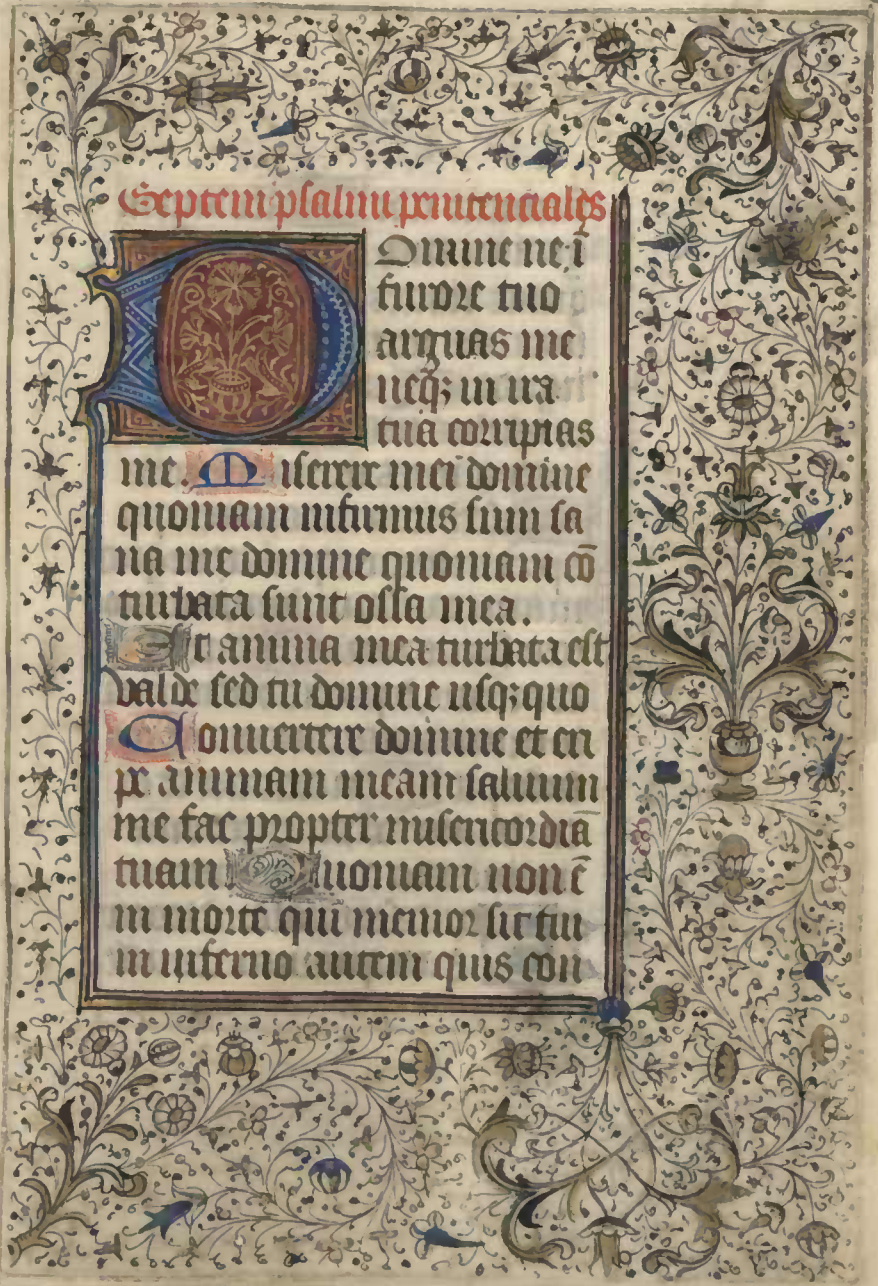 Septem psalmi penitenciales
Domine ne ī
furore tuo
arguas me
neqꝫ in ira
tua corripias
me. Miserere mei domine
quoniam infirmus sum sa
na me domine quoniam cō
turbata sunt ossa mea.
Et anima mea turbata est
valde sed tu domine usqꝫ quo
Convertere domine et eri
pe animam meam salvum
me fac propter misericordiā
tuam Quoniam non ē
in morte qui memor sit tui
in inferno autem quis con